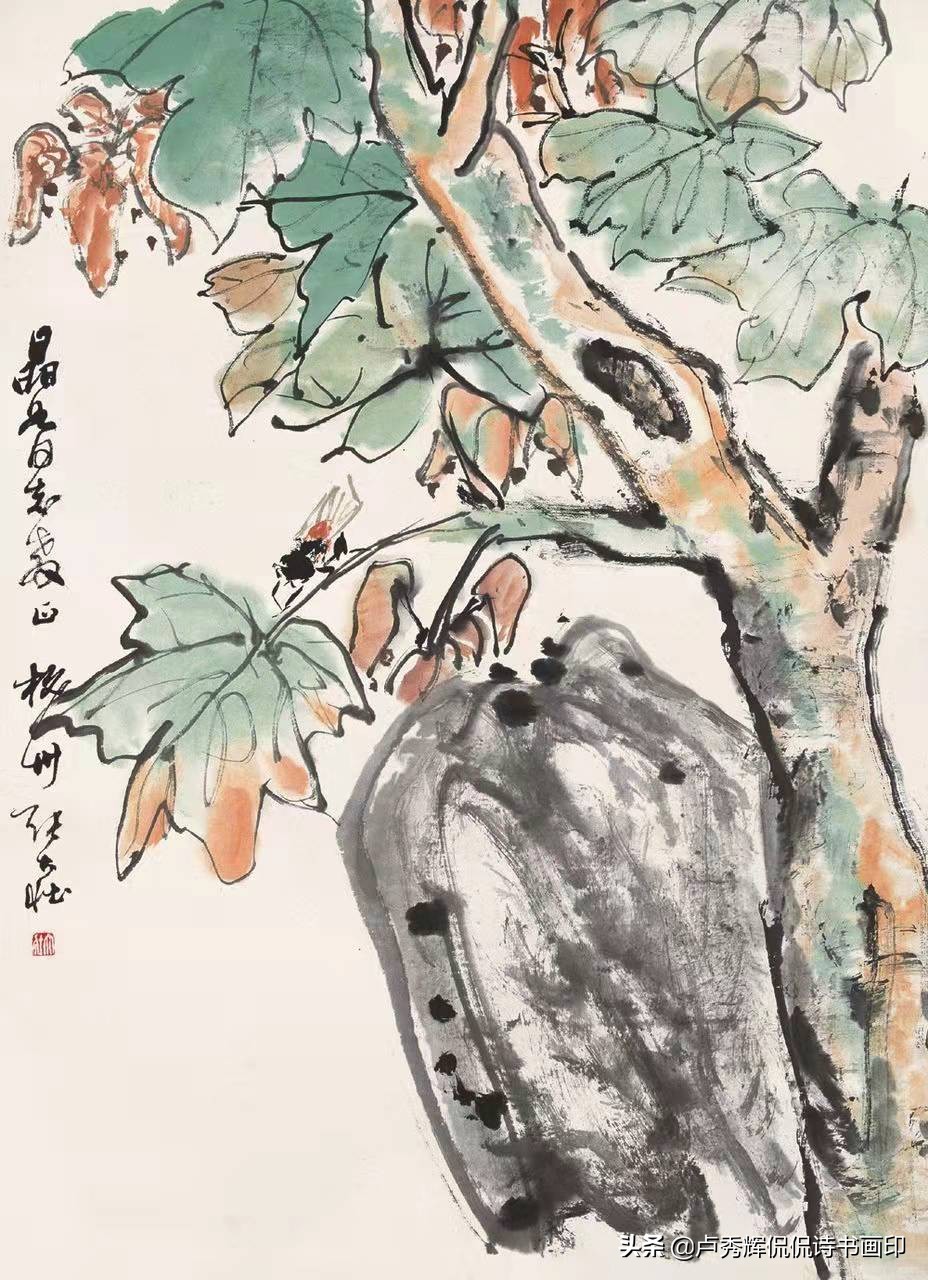 晶同志教正 杭州 張大壯
头条 @卢秀辉侃侃诗书画印